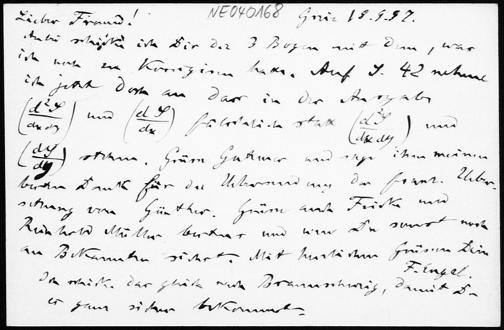 NE040168
Lieber Freund! Greiz 18.9.97.
Anbei schicke ich Dir die 3 Bogen mit dem, was
ich noch zu korrigieren hatte. Auf S. 42 nehme
ich jetzt doch an dass in der Ausgabe
(d²S/dxdy) und (dS/dx) fälschlich statt (d²S/dxdy) und
(dS/dy) stehen. Grüsse Gutzmer und sage ihm meinen
besten Dank für die Uebersendung der franz. Ueber-
setzung von Günther. Grüsse auch Fricke und
Reinhold Müller bestens und wen Du sonst noch
an Bekannten siehst. Mit herzlichen Grüssen Dein
F. Engel.
Ich schicke das gleich nach Braunschweig, damit Du
es ganz sicher bekommst.